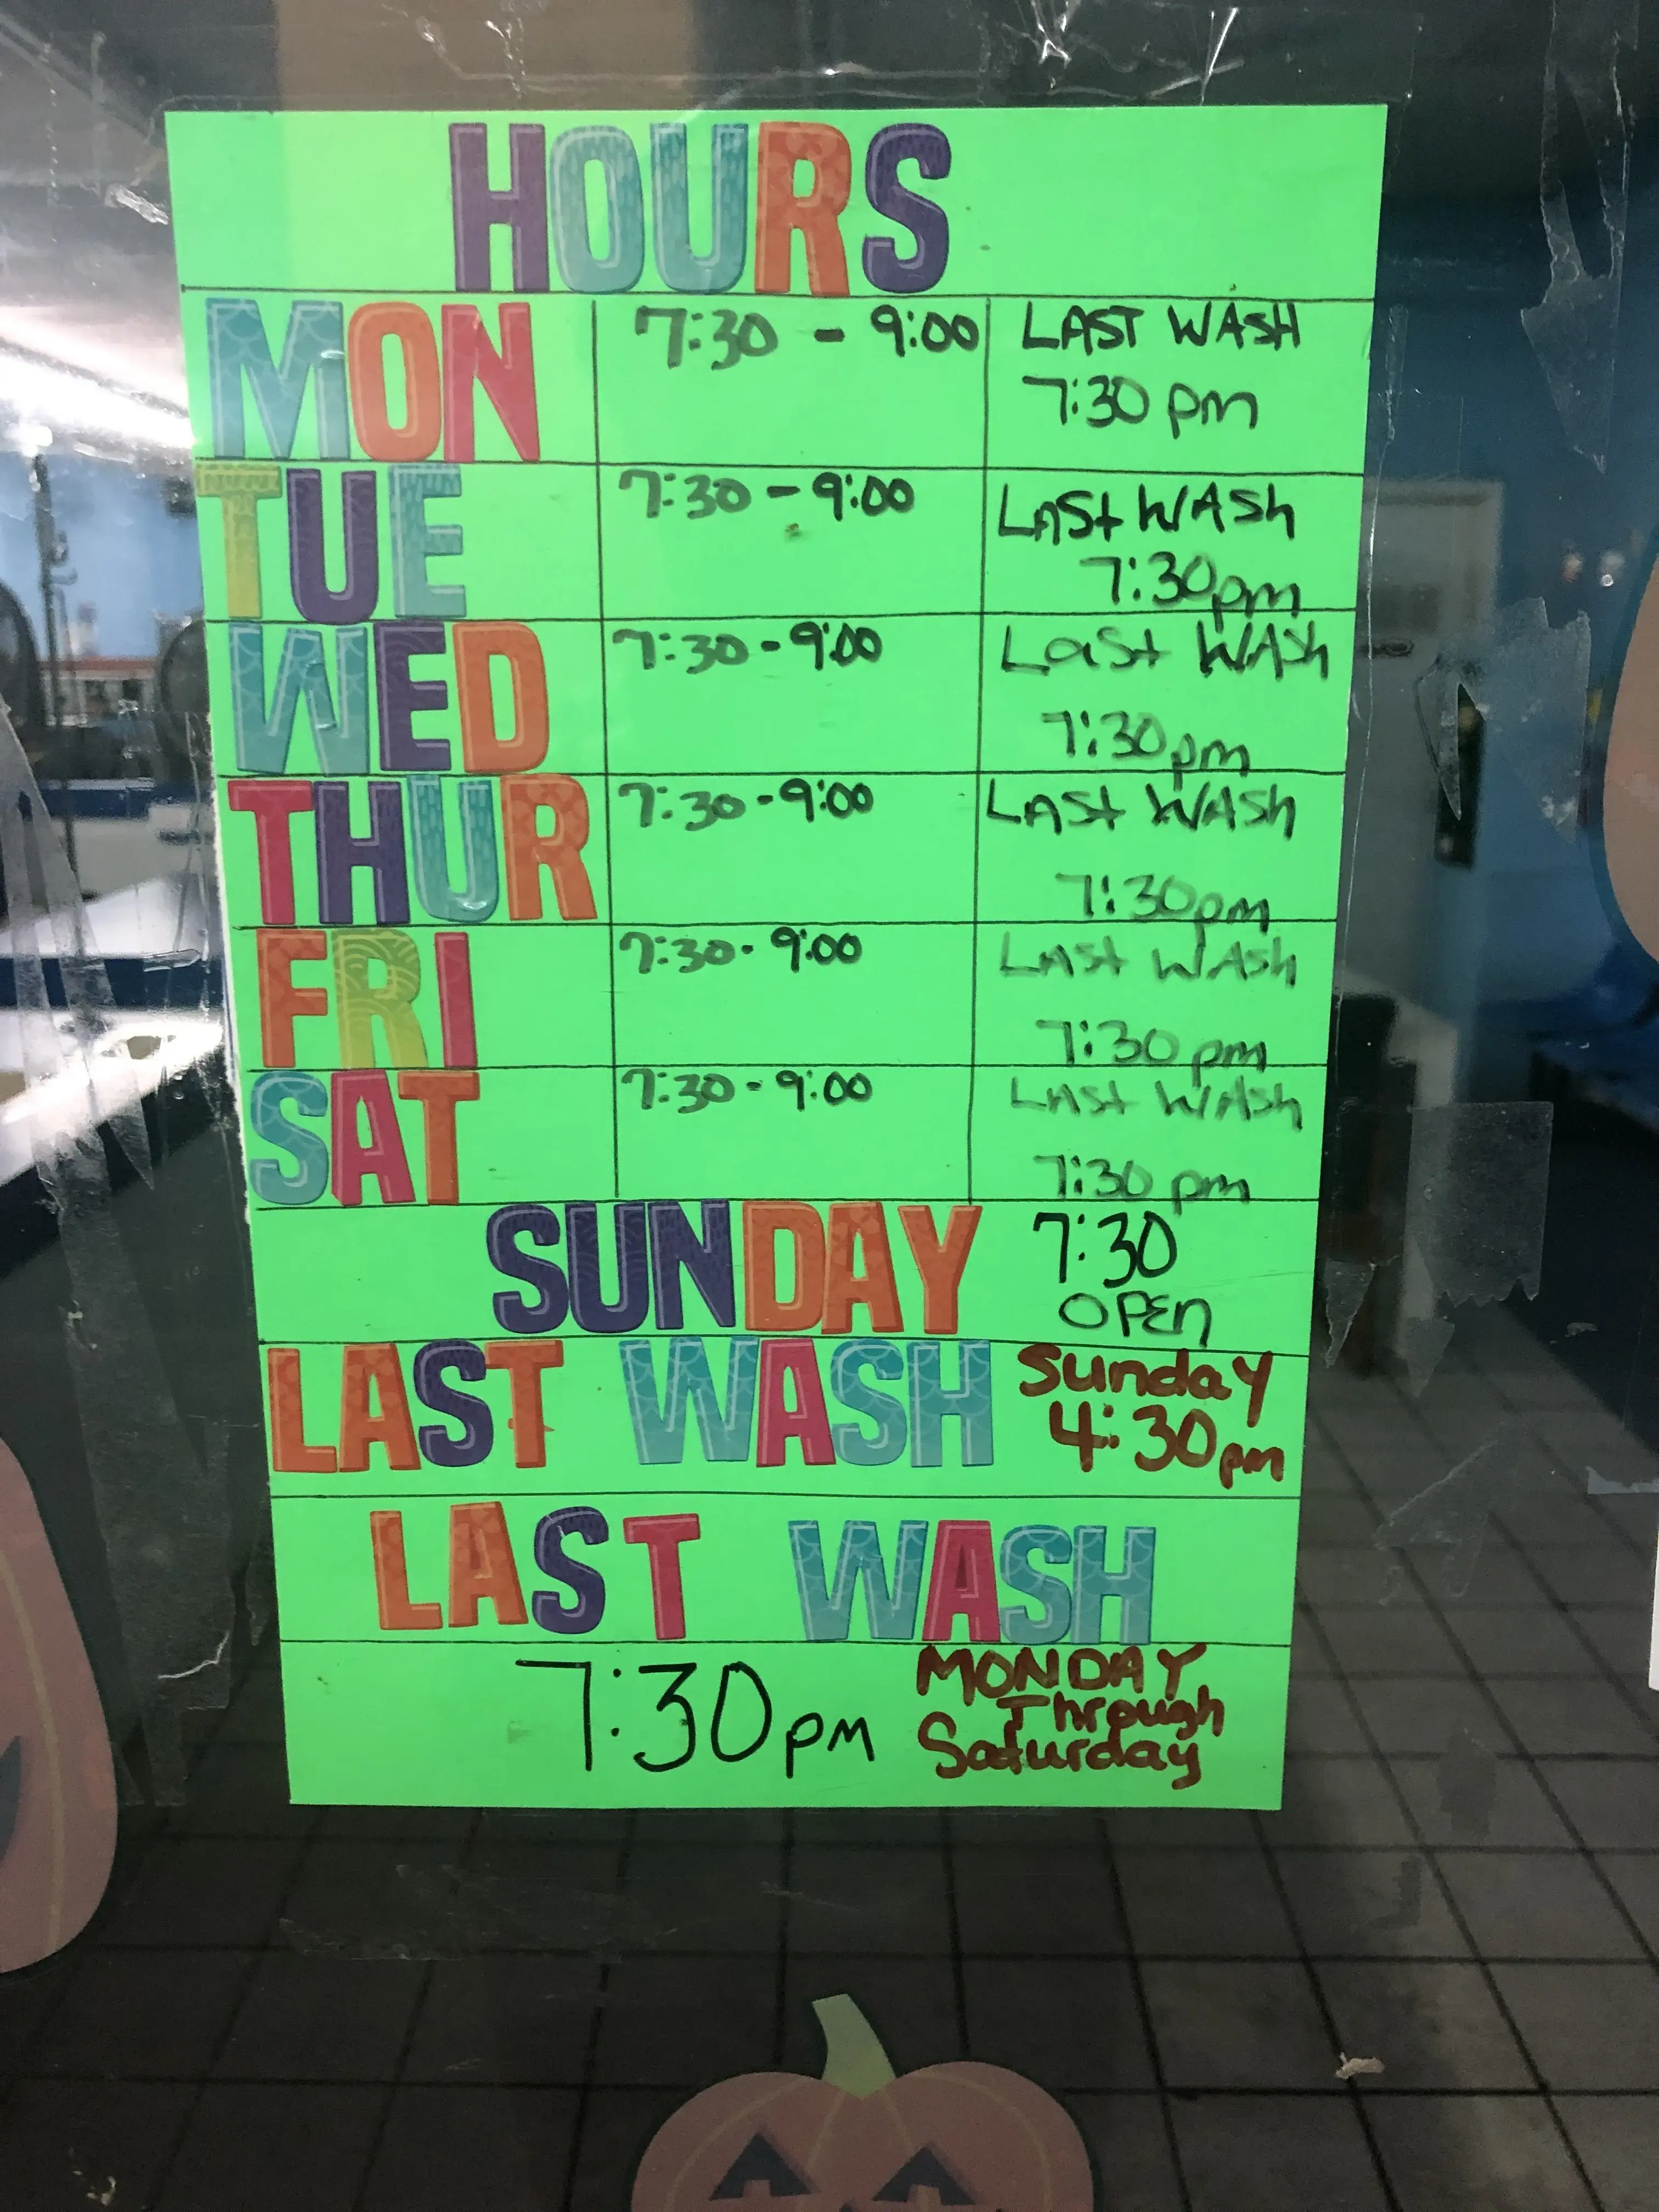 HOURS
MON 7:30 - 9:00 LAST WASH
7:30 pm
TUE 7:30 - 9:00 LAST WASH
7:30pm
WED 7:30 - 9:00 Last WASH
7:30pm
THUR 7:30 - 9:00 LAST WASH
7:30pm
FRI 7:30 - 9:00 LAST WASH
7:30 pm
SAT 7:30 - 9:00 LAST WASH
7:30 pm
SUNDAY 7:30
OPEN
LAST WASH Sunday
4:30pm
LAST WASH
7:30pm MONDAY
Through
Saturday